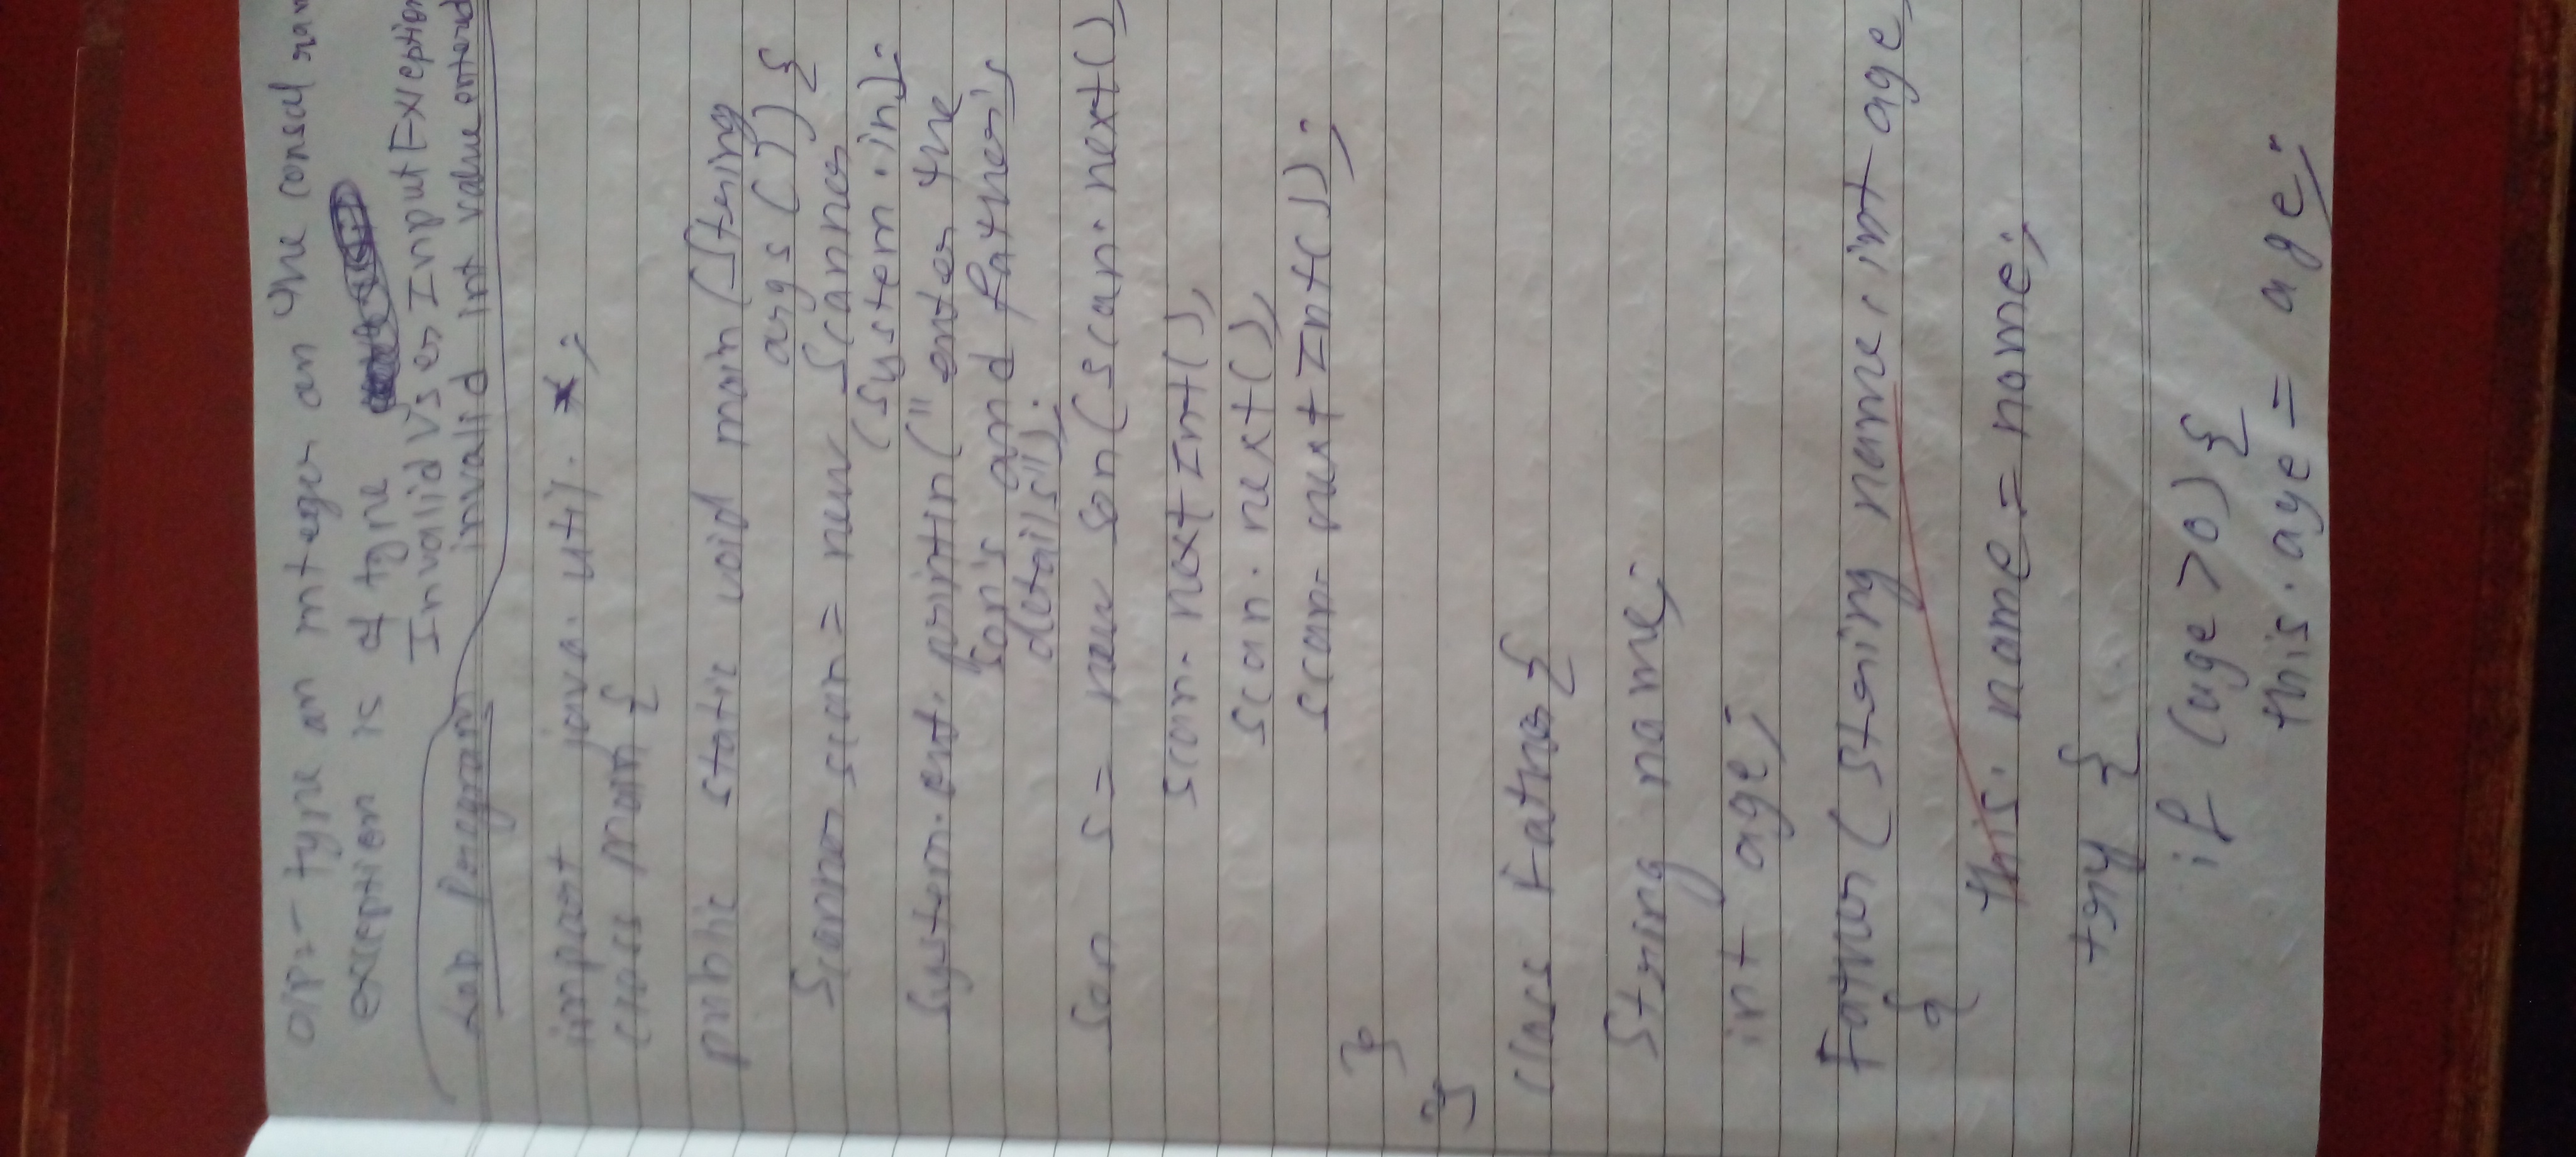 O/P:- type an integer on the consol
exception is of type
Invalid User Input Exception
invalid int value entered
Lab Program
import java.util.*;
class Main {
public static void main(String
args[]) {
Scanner scan = new Scanner
(System.in);
System.out.println("enter the
son's and father's
details");
Son s = new Son(scan.next(),
scan.nextInt(),
scan.next(),
scan.nextInt());
}
}
class Father {
String name;
int age;
Father (String name, int age
{
this.name = name;
try {
if (age>0) {
this.age = age;